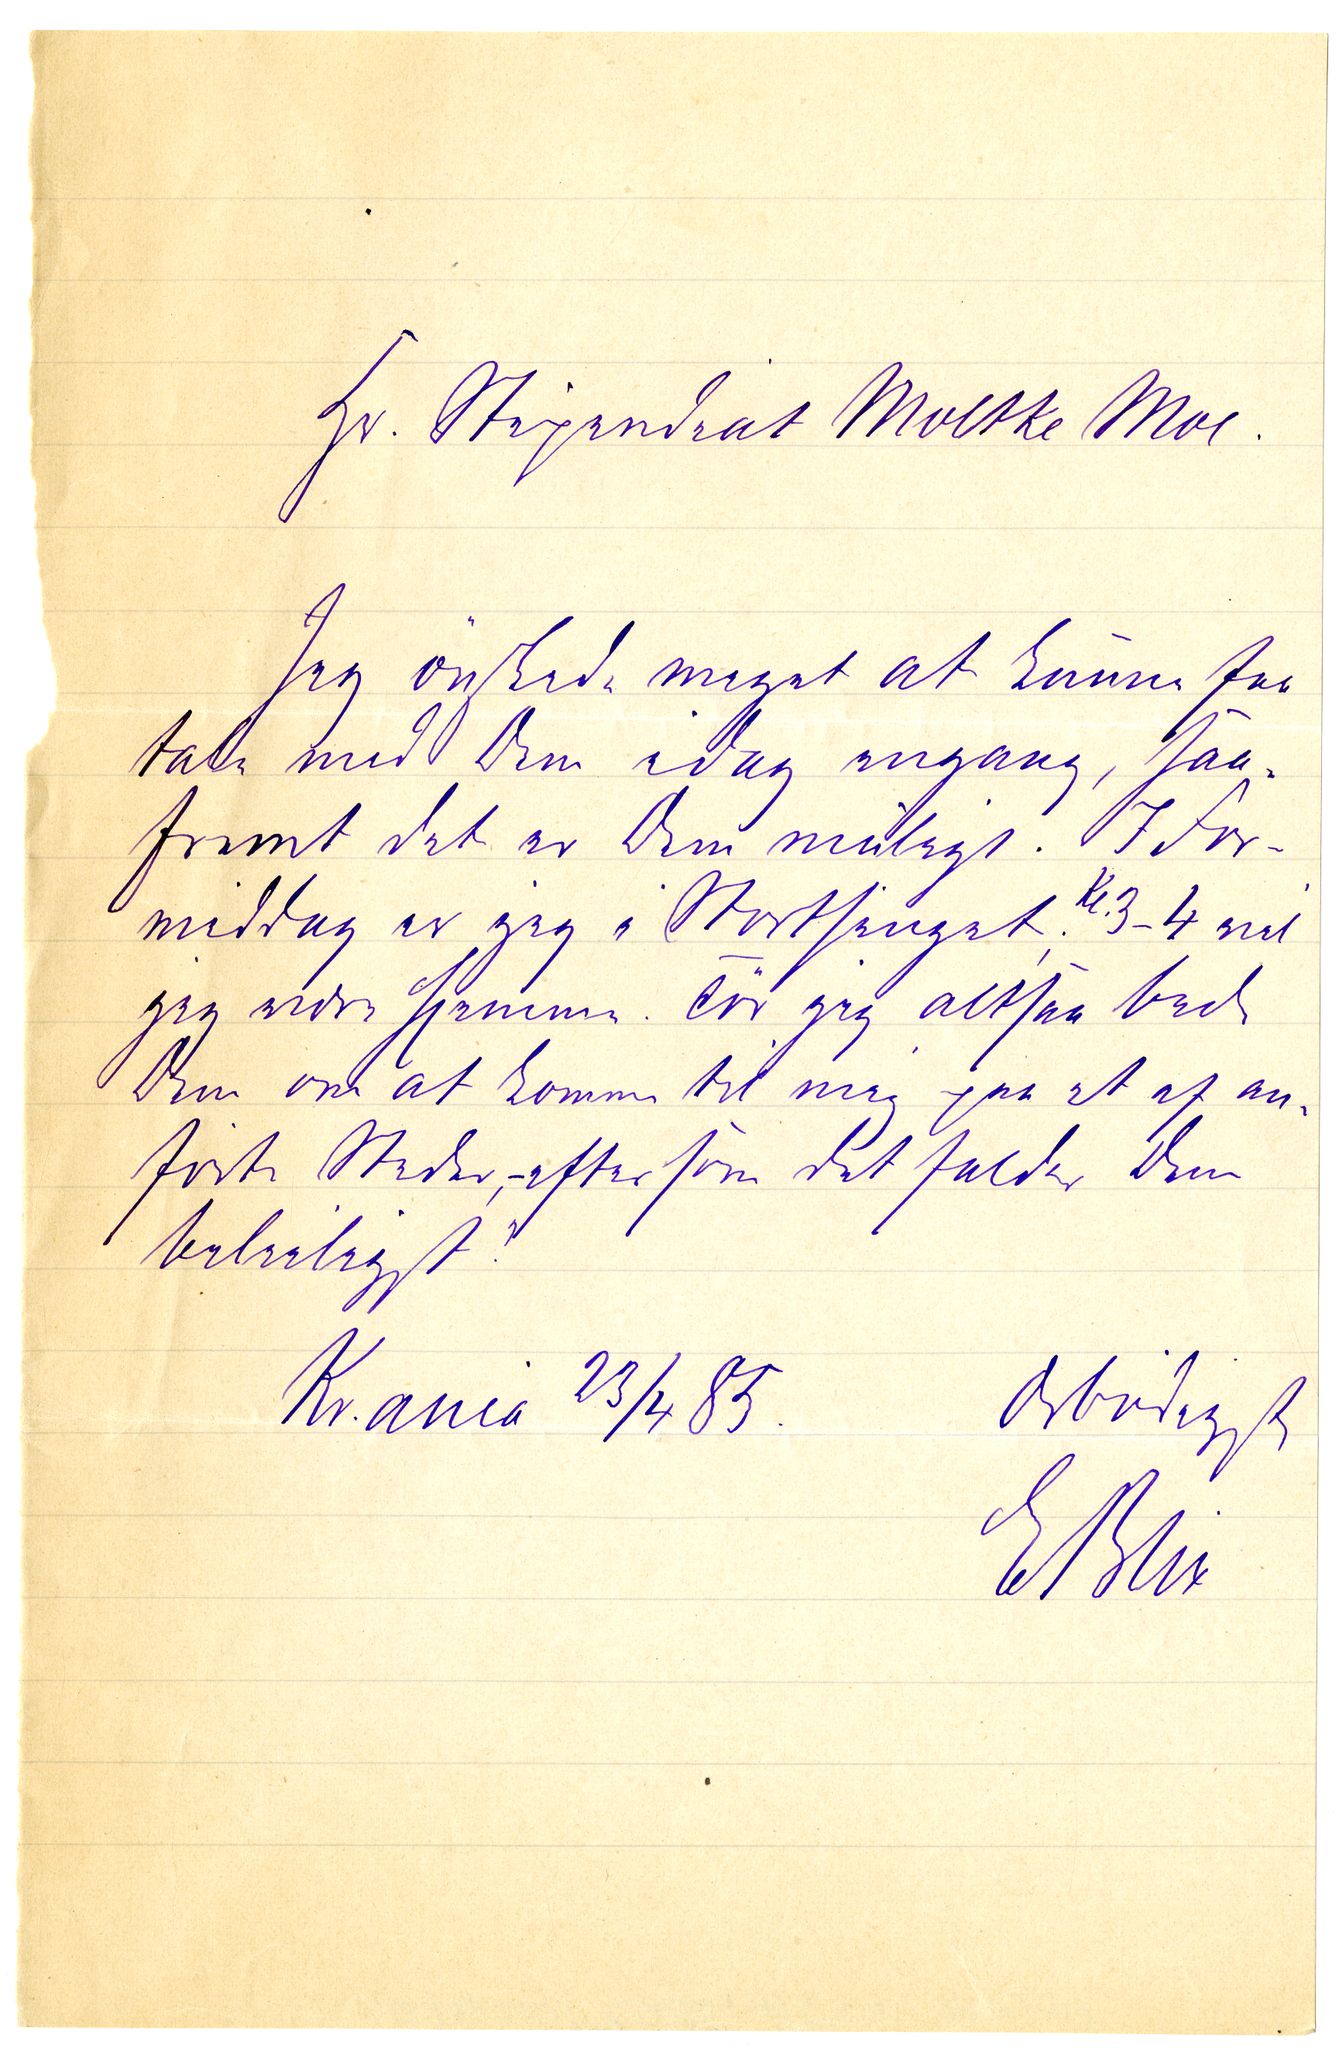 Hr. Stipendiat Moltke Moe.
Jeg önskede meget at kunne faa
tale med Dem idag engang, saa-
fremt det er Dem muligt. I For-
middag er jeg i Storthinget, Kl. 3-4 vil
jeg være hjemme. Tör jeg altsaa bede
Dem om at komme til mig paa et af an-
förte Steder, - eftersom det falder Dem
beleiligst?
Kr.ania 23/4 85.
Ærbödigst
E Blix